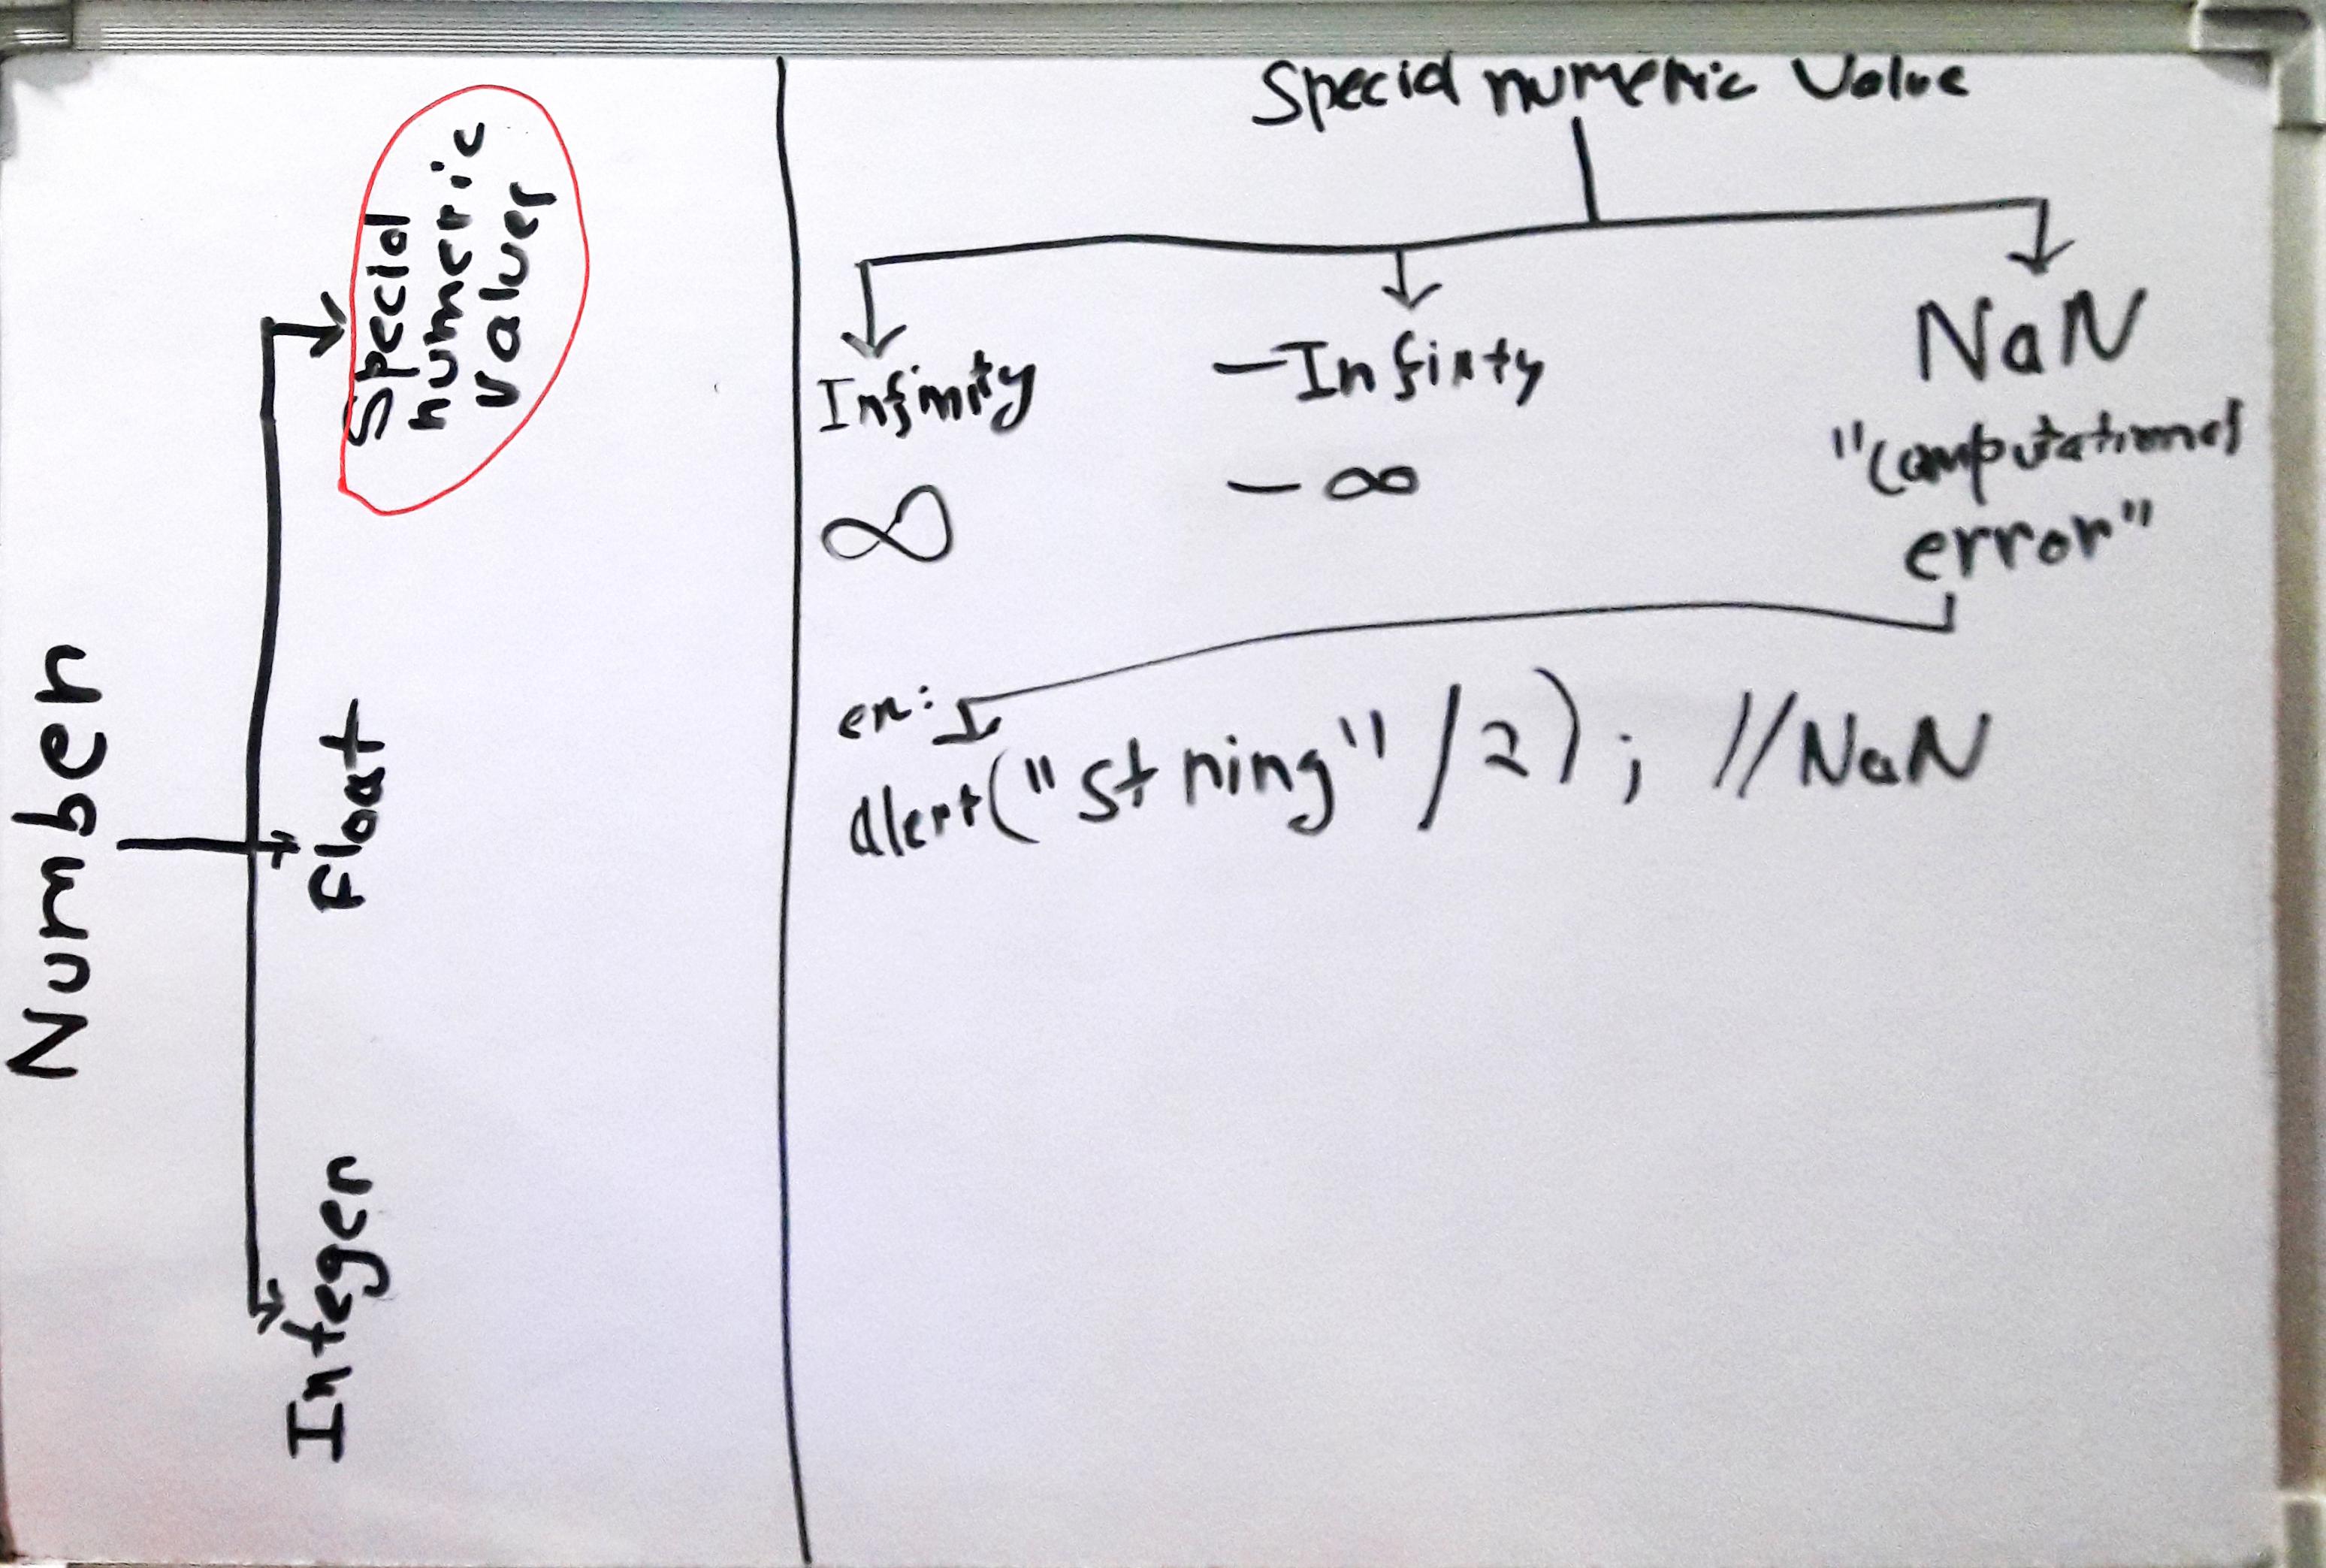 Number
Integer
Float
Special
numeric
values
Special numeric Value
Infinity
-Infinty
NaN
∞
-∞
"Computational
error"
ex:
alert("string"/2); //NaN